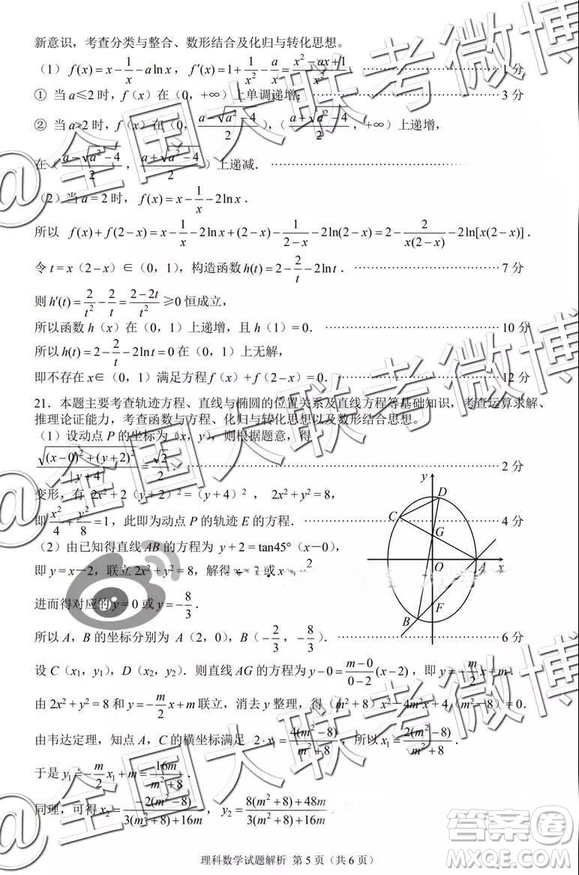 新意识，考查分类与整合、数形结合及化归与转化思想。
（1） f(x) = x − 1/x − a ln x，f′(x) = 1 + 1/x² − a/x = (x² − ax + 1)/x² 1 分
① 当 a≤2 时，f（x）在（0，+∞）上单调递增； 3 分
② 当 a>2 时，f（x）在（0，(a−√(a²−4))/2），（(a+√(a²−4))/2，+∞）上递增，
在（(a−√(a²−4))/2，(a+√(a²−4))/2）上递减．
（2）当 a = 2 时，f(x) = x − 1/x − 2ln x．
所以 f(x) + f(2−x) = x − 1/x − 2ln x + (2−x) − 1/(2−x) − 2ln(2−x) = 2 − 2/(x(2−x)) − 2ln[x(2−x)]．
令 t = x（2−x）∈（0，1），构造函数 h(t) = 2 − 2/t − 2ln t． 7 分
则 h′(t) = 2/t² − 2/t = (2−2t)/t² ≥0 恒成立，
所以函数 h（x）在（0，1）上递增，且 h（1）= 0． 10 分
所以 h(t) = 2 − 2/t − 2ln t = 0 在（0，1）上无解，
即不存在 x∈（0，1）满足方程 f（x）+ f（2−x）= 0 12 分
21．本题主要考查轨迹方程、直线与椭圆的位置关系及直线方程等基础知识，考查运算求解、
推理论证能力，考查函数与方程、化归与转化思想以及数形结合思想。
（1）设动点 P 的坐标为（x，y），则根据题意，得
√((x−0)²+(y+2)²)/|y+4| = √2/2 2 分
变形，有 2x²+2（y+2）²=（y+4）²，2x²+y²=8，
即 x²/4 + y²/8 = 1，此即为动点 P 的轨迹 E 的方程． 4 分
（2）由已知得直线 AB 的方程为 y+2 = tan45°（x−0），
即 y = x−2，联立 2x²+y²=8，解得 x=2 或 x=
进而得对应的 y = 0 或 y = −8/3．
所以 A，B 的坐标分别为 A（2，0），B（−2/3，−8/3）． 6 分
y
D
C
G
O
A
x
F
B
设 C（x₁，y₁），D（x₂，y₂）．则直线 AG 的方程为 y−0 = (m−0)/(0−2) (x−2)，即 y = −m/2 x + m
由 2x²+y²=8 和 y = −m/2 x + m 联立，消去 y 整理，得（m²+8）x²−4m²x+4（m²−8）= 0．
由韦达定理，知点 A，C 的横坐标满足 2·x₁ = 4(m²−8)/(m²+8)，所以 x₁ = 2(m²−8)/(m²+8)
于是 y₁ = −m/2 x₁ + m = 16m/(m²+8)．
同理，可得 x₂ = −2(m²−8)/(3(m²+8)+16m)，y₂ = (8(m²+8)+48m)/(3(m²+8)+16m)．
理科数学试题解析 第 5 页（共 6 页）
@全国大联考微博
@全国大联考微博
答案圈
MXQE.COM